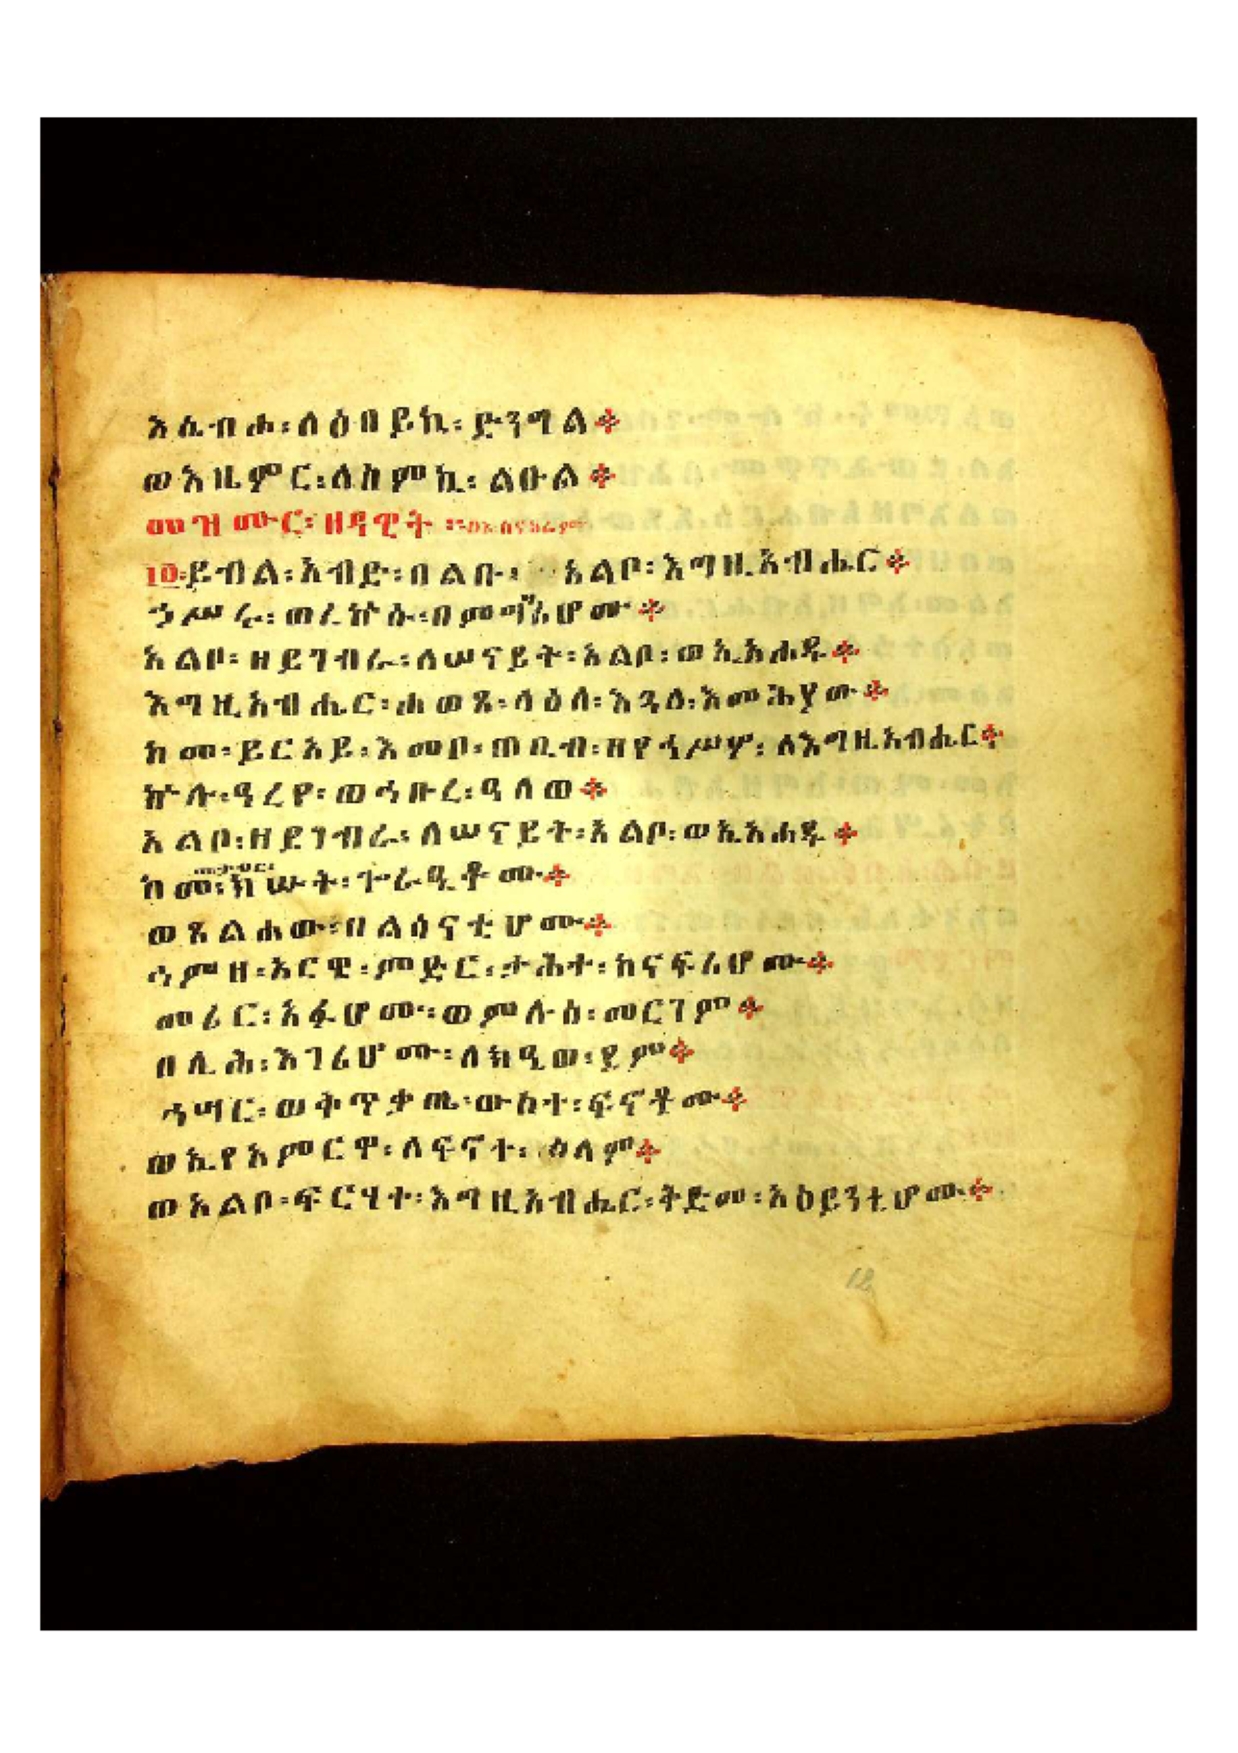 እሴብሐ፡ለዕበይኪ፡ድንግል፨
ወእዜምር፡ለስምኪ፡ልዑል፨
መዝሙር፡ዘዳዊት፡
፲፫፡ይብል፡አብድ፡በልቡ፡ አልቦ፡እግዚአብሔር፨
ኃሥሩ፡ወረኵሱ፡በምግባሪሆሙ፨
አልቦ፡ዘይገብራ፡ለሠናይት፡አልቦ፡ወኢአሐዱ፨
እግዚአብሔር፡ሐወጸ፡ላዕለ፡እጓለ፡እመሕያው፨
ከመ፡ይርአይ፡እመቦ፡ጠቢብ፡ዘየኀሥሦ፡ለእግዚአብሔር፨
ኵሉ፡ዓረየ፡ወኀቡረ፡ዓለወ፨
አልቦ፡ዘይገብራ፡ለሠናይት፡አልቦ፡ወኢአሐዱ፨
ከመ፡ክሡት፡ጐራዒቶሙ፨
ወጸልሐው፡በልሳናቲሆሙ፨
ኀምዘ፡አርዌ፡ምድር፡ታሕተ፡ከናፍሪሆሙ፨
መሪር፡አፉሆሙ፡ወምሉስ፡መርገም፨
በሊሕ፡እገሪሆሙ፡ለክዒወ፡ደም፨
ኀሣር፡ወቅጥቃጤ፡ውስተ፡ፍኖቶሙ፨
ወኢየአምርዋ፡ለፍኖተ፡ሰላም፨
ወአልቦ፡ፍርሃተ፡እግዚአብሔር፡ቅድመ፡አዕይንቲሆሙ፨
12